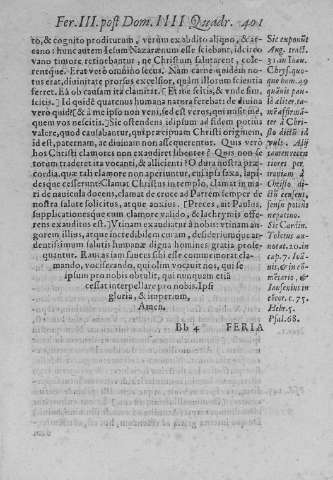 Fer. III. post Dom. IIII Quadr. 401
to, & cognito proditurum, verum ex abdito aliquo, & ar-
cano: hunc autem Iesum Nazarænum esse sciebant, idcirco
vano timore retinebantur, ne Christum salutarent, cole-
rentque. Erat verò omnino lucus. Nam carne quidem no-
tus erat, divinitate prorsus excelsor, quàm illorum scientia
ferret. Ea ob causam ita clamitat. [Et me scitis, & unde sim,
scitis.] Id quidē quatenus humana natura ferebat: de divina
verò quid? [& à me ipso non veni, sed est verus, qui misit me,
quem vos nescitis.] Sic ostendens id ipsum ad fidem potius
valere, quod causabantur, quia præcipuam Christi originem,
id est, paternam, ac divinam non assequerentur. Quis verò
hos Christi clamores non exaudiret libenter? Quis non se
totum traderet ita vocanti, & allicienti? O dura nostra præ-
cordia. quæ tali clamore non aperiuntur, cui ipsa saxa, lapi-
desque cesserunt. Clamat Christus in templo, clamat in ma-
ri de navicula docens, clamat de cruce ad Patrem semper de
nostra salute solicitus, atque anxius. [Preces, ait Paulus,
supplicationesque cum clamore valido, & lachrymis offe-
rens exauditus est.] Vtinam exaudiatur à nobis: vtinam an-
gorem illius, atque incredibilem curam, desideriumque ar-
dentissimum salutis humanæ digna homines gratia prose-
quantur. Raucas iam fauces sibi esse commemorat cla-
mando, vociferando, qui olim vocavit nos, qui se
ipsum pro nobis obtulit, qui nunquam etiā
cessat interpellare pro nobis. Ipsi
gloria, & imperium,
Amen.
Bb 4 FERIA
Sic exponūt
Aug. tract.
31. in Ioan.
Chrys. quo-
que hom. 29
quāuis pau-
lò aliter, ta-
mē affirmā-
ter à Chri-
sto dictū id
vult. Alij
tolerius à
Christo di-
ctū censent,
sensu potius
negatino.
Sic Caietan.
Toletus an-
notat. 20. in
cap. 7. Ioan-
nis, & in cō-
mētario, &
Iansenius in
cōcor. c. 75.
Hebr. 5.
Psal. 68.